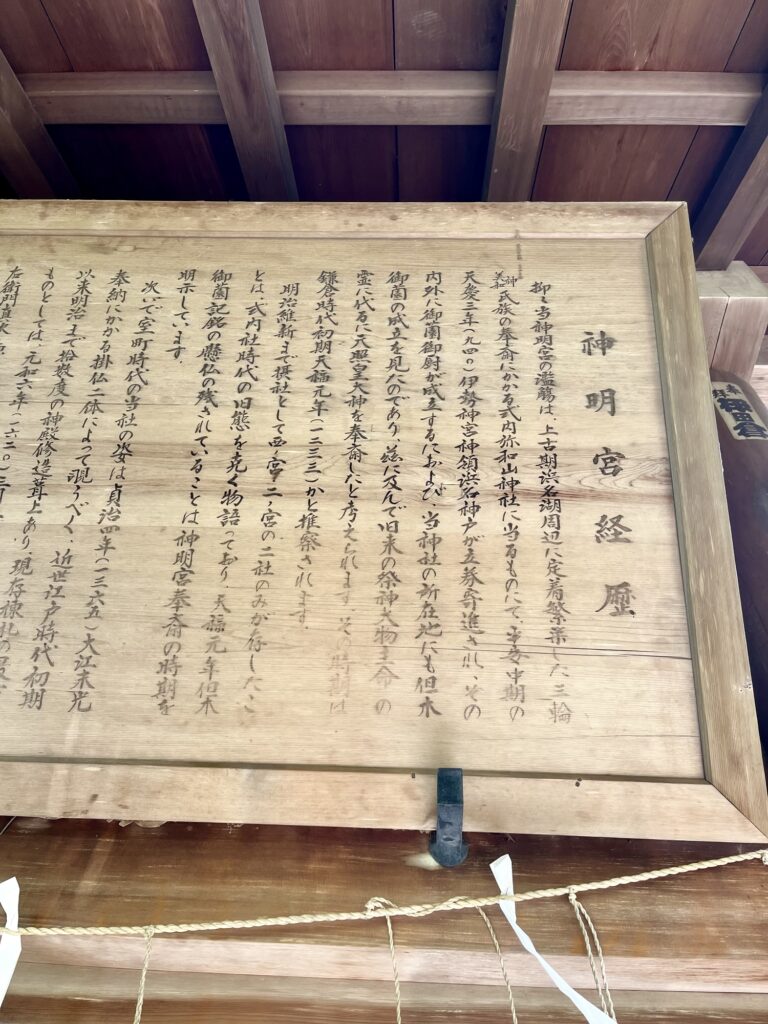 神明宮経歴
抑々当神明宮の濫觴は、上古期浜名湖周辺に定着繁栄した三輪
神美和氏族の奉斎にかかる式内弥和山神社に当るものにて、平安中期の
天慶三年(九四〇)伊勢神宮神領浜名神戸が立券寄進され、その
内外に御薗御厨が成立するにおよび、当神社の所在地にも但木
御薗の成立を見たのであり、茲に及んで旧来の祭神大物主命の
霊に代るに天照皇大神を奉斎したと考えられます。その時期は
鎌倉時代初期天福元年(一二三三)かと推察されます。
明治維新まで摂社として西ノ宮、二ノ宮の二社のみが存したこ
とは、式内社時代の旧態を克く物語っており、天福元年但木
御薗記銘の懸仏の残されていることは神明宮奉斎の時期を
明示しています。
次いで室町時代の当社の姿は貞治四年(一三六五)大江末光
奉納にかかる掛仏二体によって覗うべく、近世江戸時代初期
以来明治まで拾数度の神殿修造葺上あり、現存棟札の
ものとしては、元和六年(一六二〇)三月
右衛門